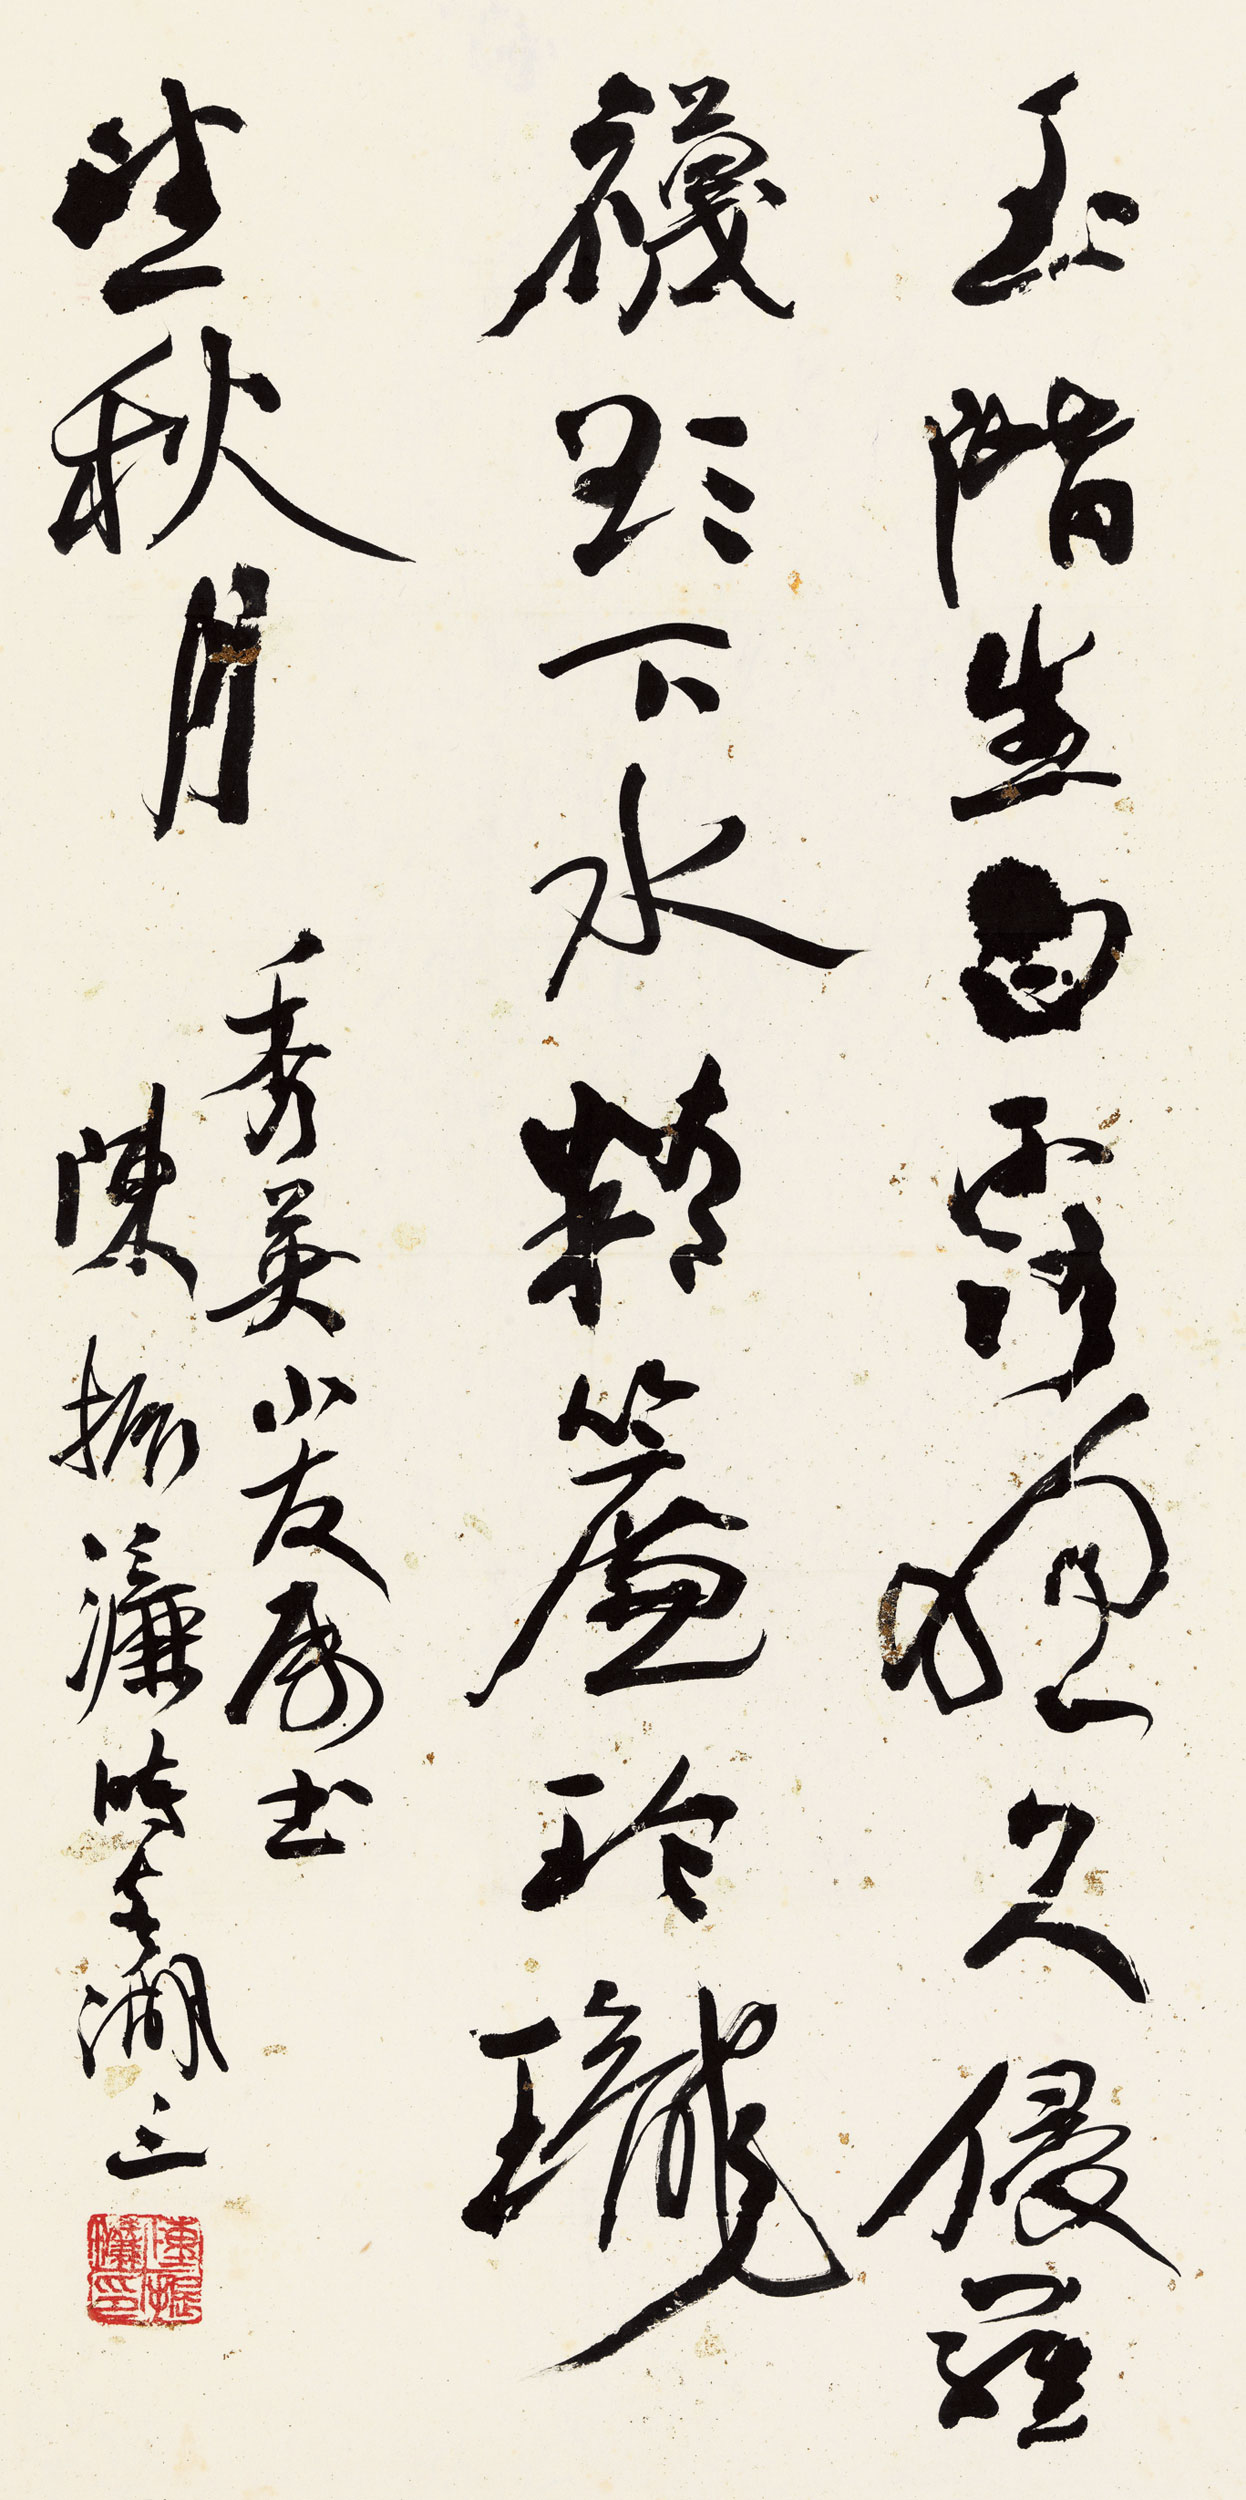 玉階生白露夜久侵羅
襪卻下水精簾玲瓏
望秋月
秀英小友屬書
陳振濂時湖上
陳振濂印